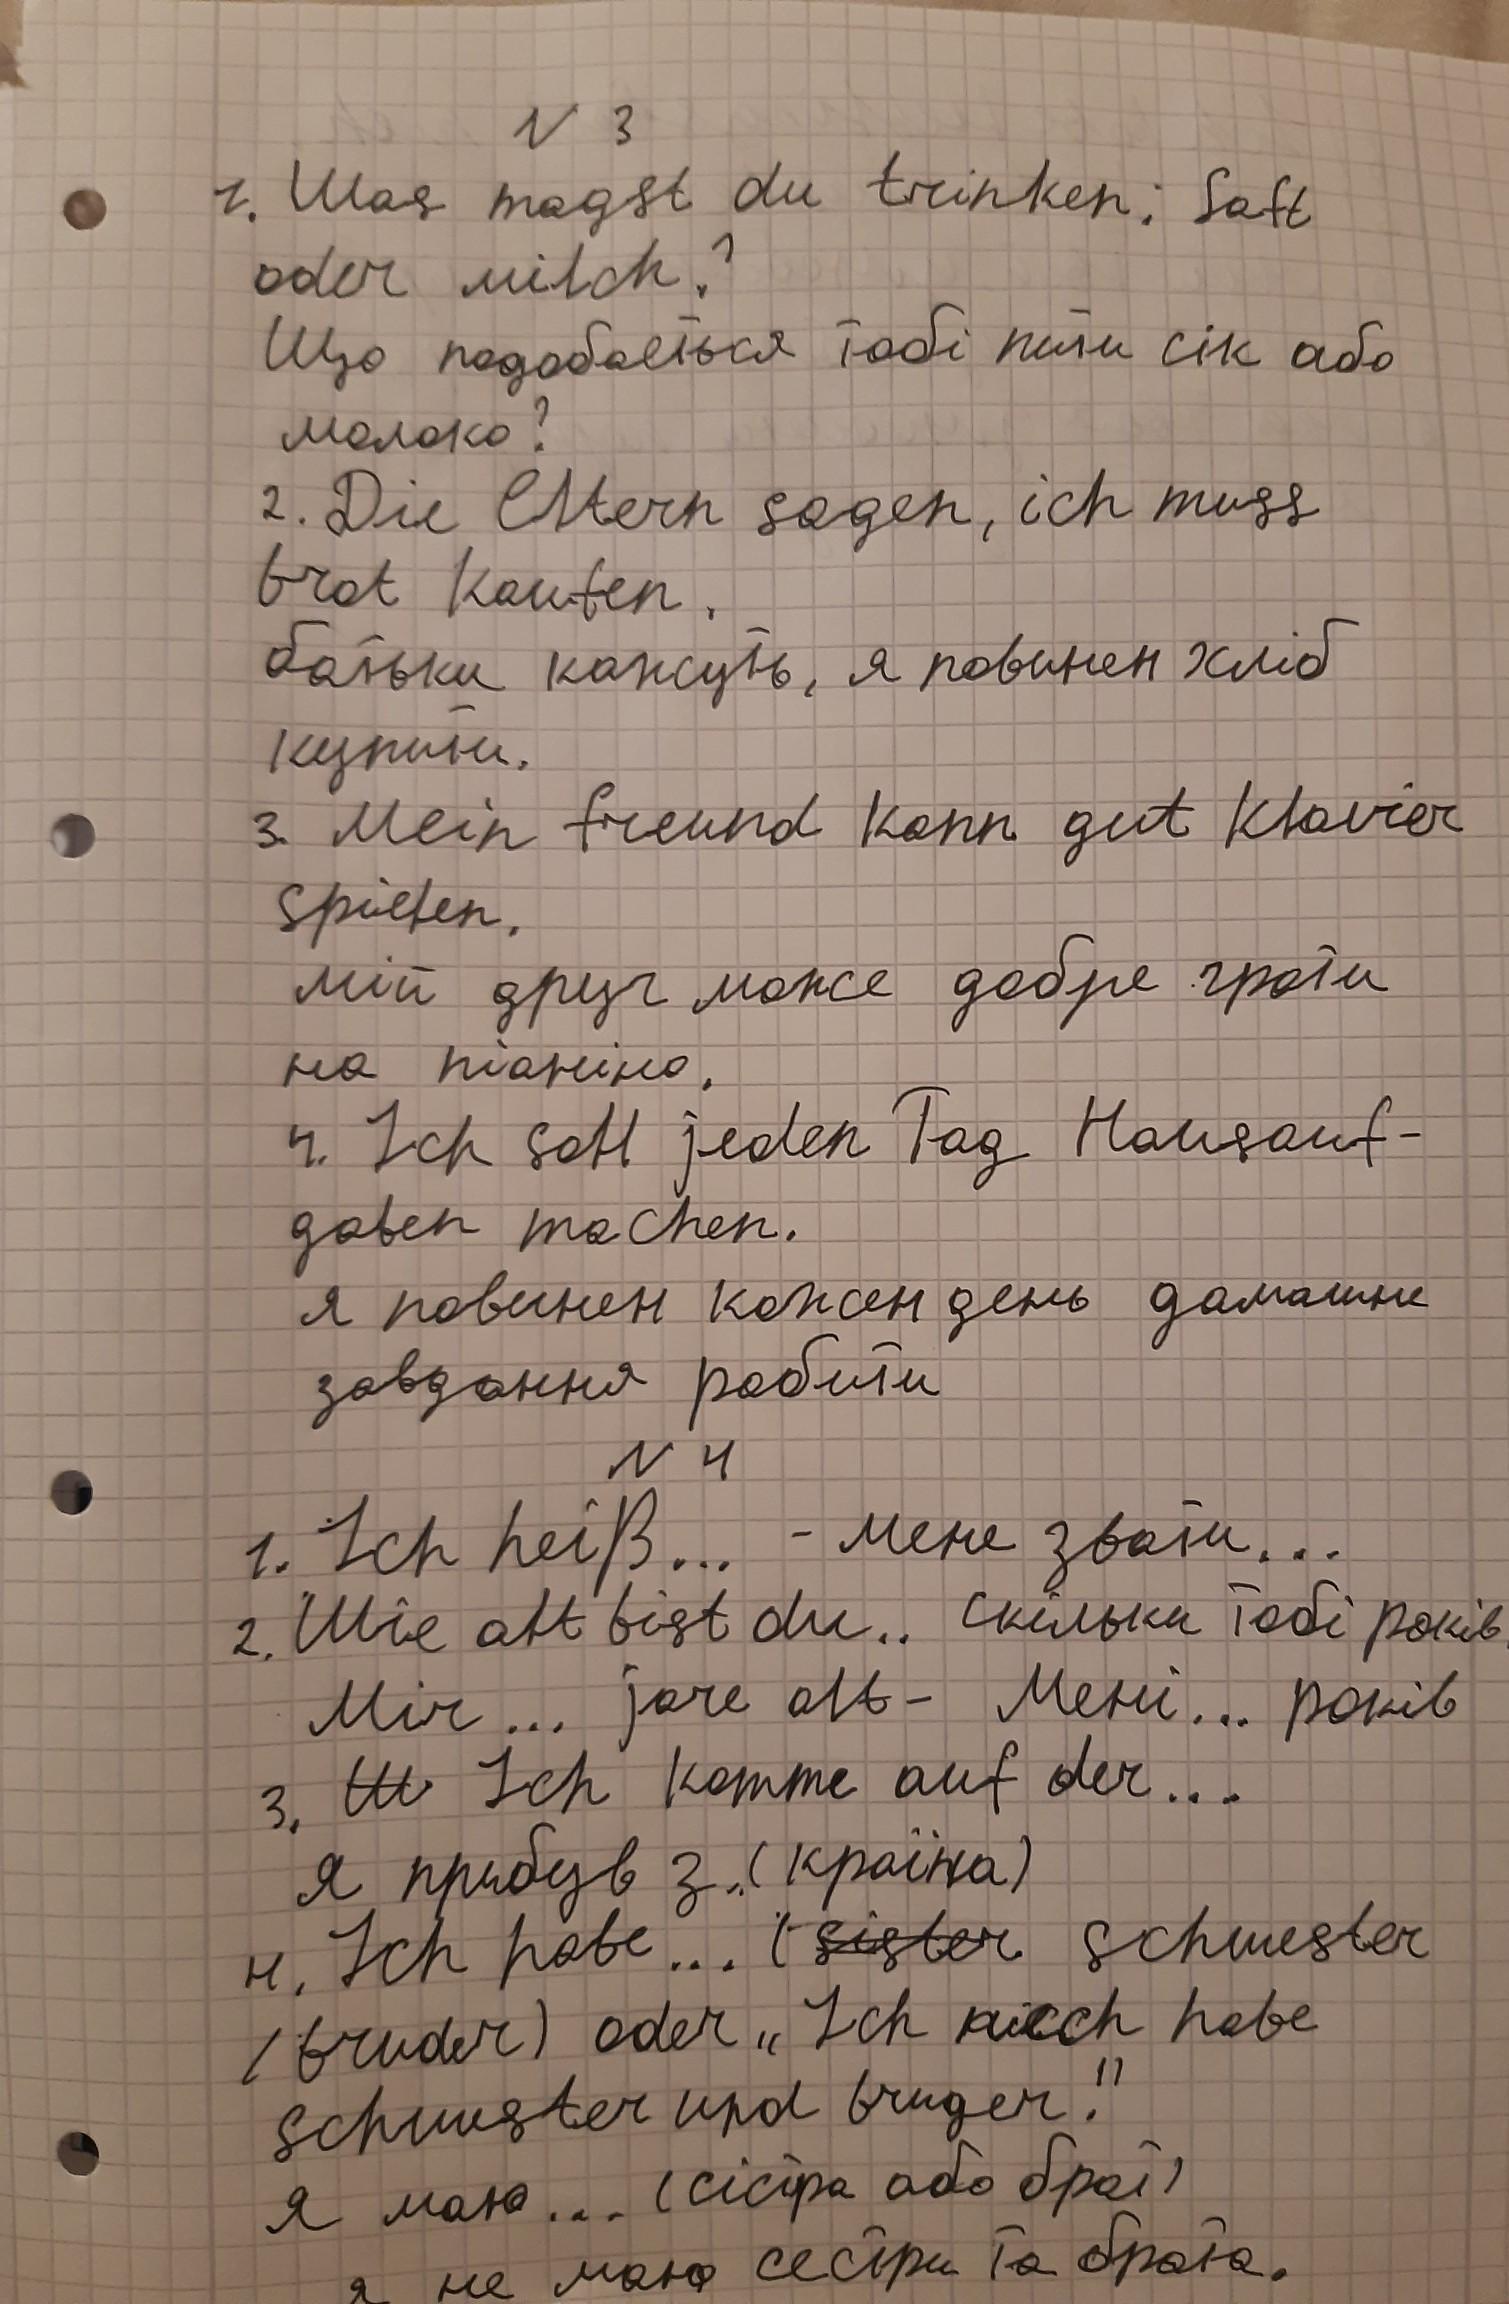 N 3
1. Was magst du trinken: Saft
oder milch?
Що подобається тобі пити сік або
молоко?
2. Die Eltern sagen, ich muss
brot kaufen.
батьки кажуть, я повинен хліб
купити.
3. Mein freund kann gut klavier
spielen.
мій друг може добре грати
на піаніно.
4. Ich soll jeden Tag Hausauf-
gaben machen.
я повинен кожен день домашнє
завдання робити
N 4
1. Ich heiß... - мене звати...
2. Wie alt bist du.. скільки тобі років.
Mir ... jare alt - Мені... років
3. Ich komme auf der...
Я прибув з..(країна)
4. Ich habe ... (sister schwester
(bruder) oder „Ich nicch habe
schwester und bruger!"
Я маю.... (сістра або брат)
я не маю сестри та брата.